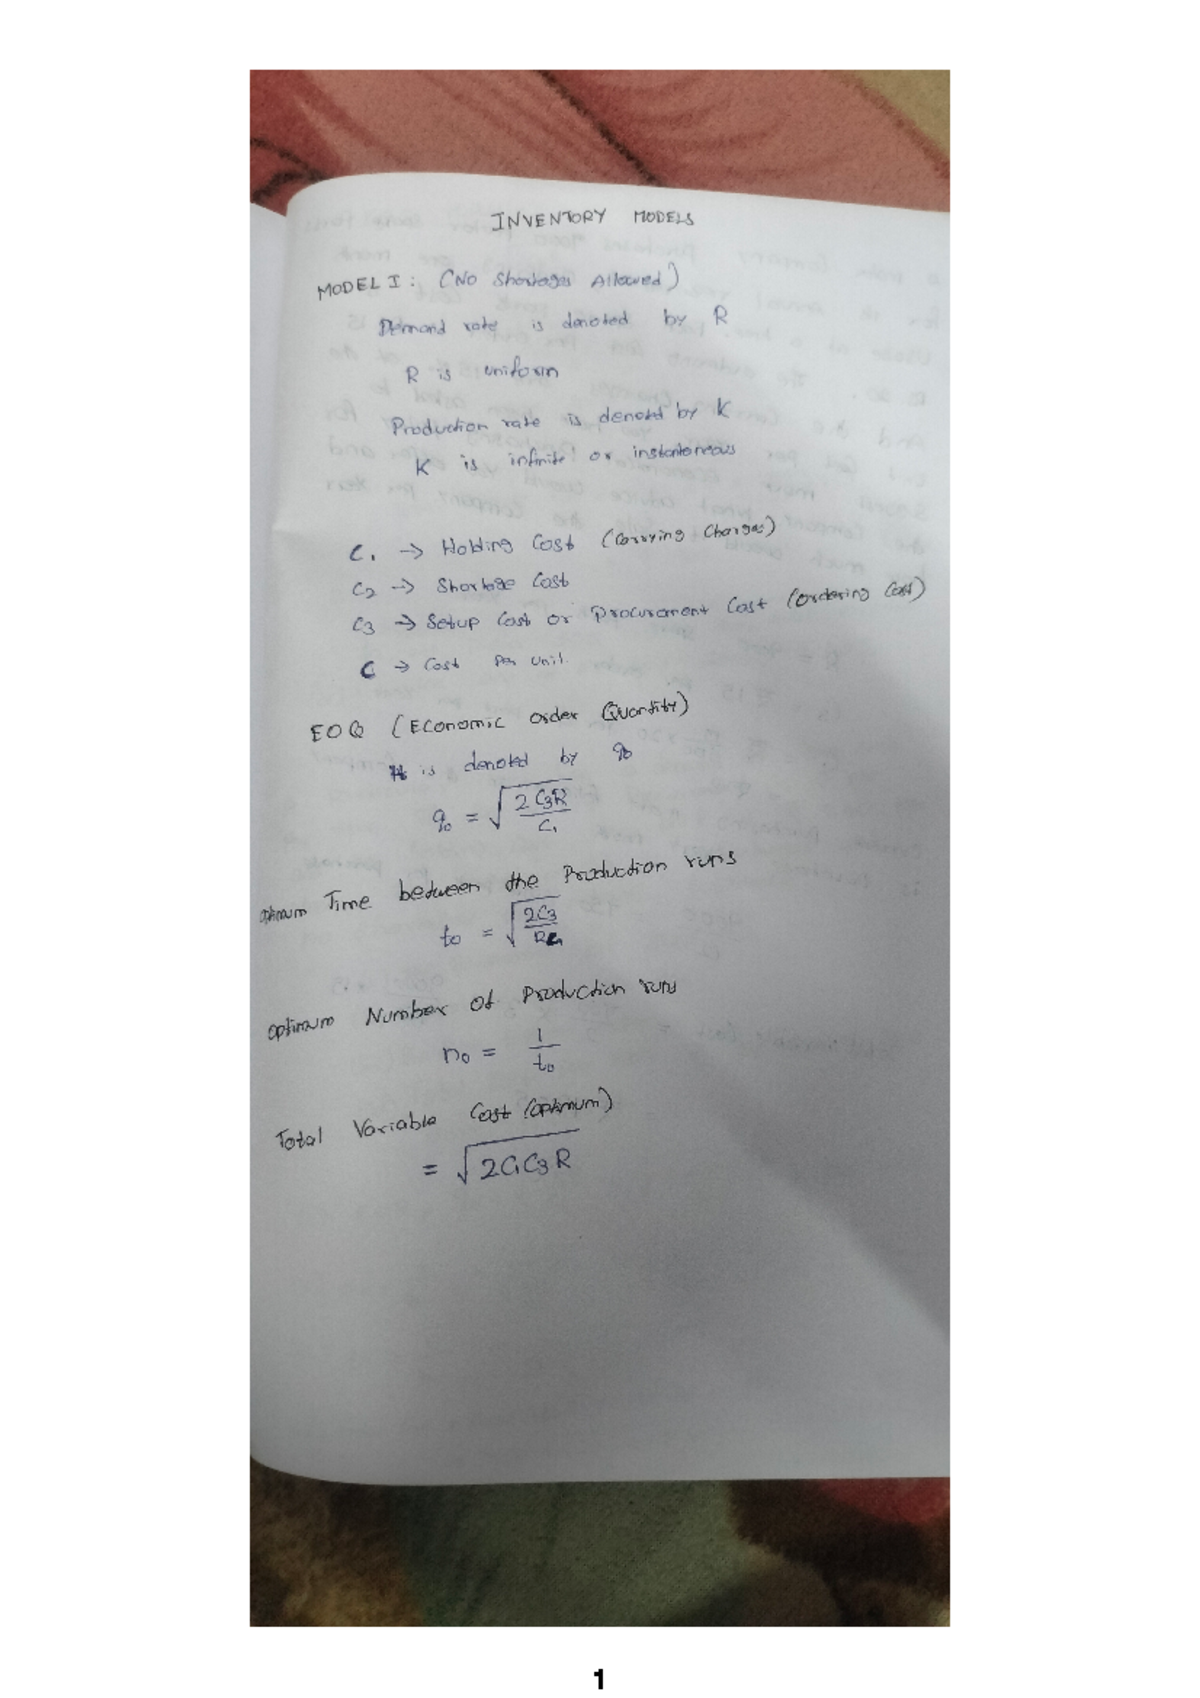 INVENTORY MODELS
MODEL I : (No Shortages Allowed)
Demand rate is denoted by R
R is uniform
Production rate is denoted by K
K is infinite or instantaneous
C₁ → Holding Cost (Carrying Charges)
C₂ → Shortage Cost
C₃ → Setup Cost or Procurement Cost (Ordering Cost)
C → Cost Per Unit.
EOQ (Economic Order Quantity)
It is denoted by q₀
q₀ = √(2C₃R / C₁)
optimum Time between the Production runs
t₀ = √(2C₃ / RC₁)
optimum Number of Production runs
n₀ = 1 / t₀
Total Variable Cost (optimum)
= √(2C₁C₃R)
1